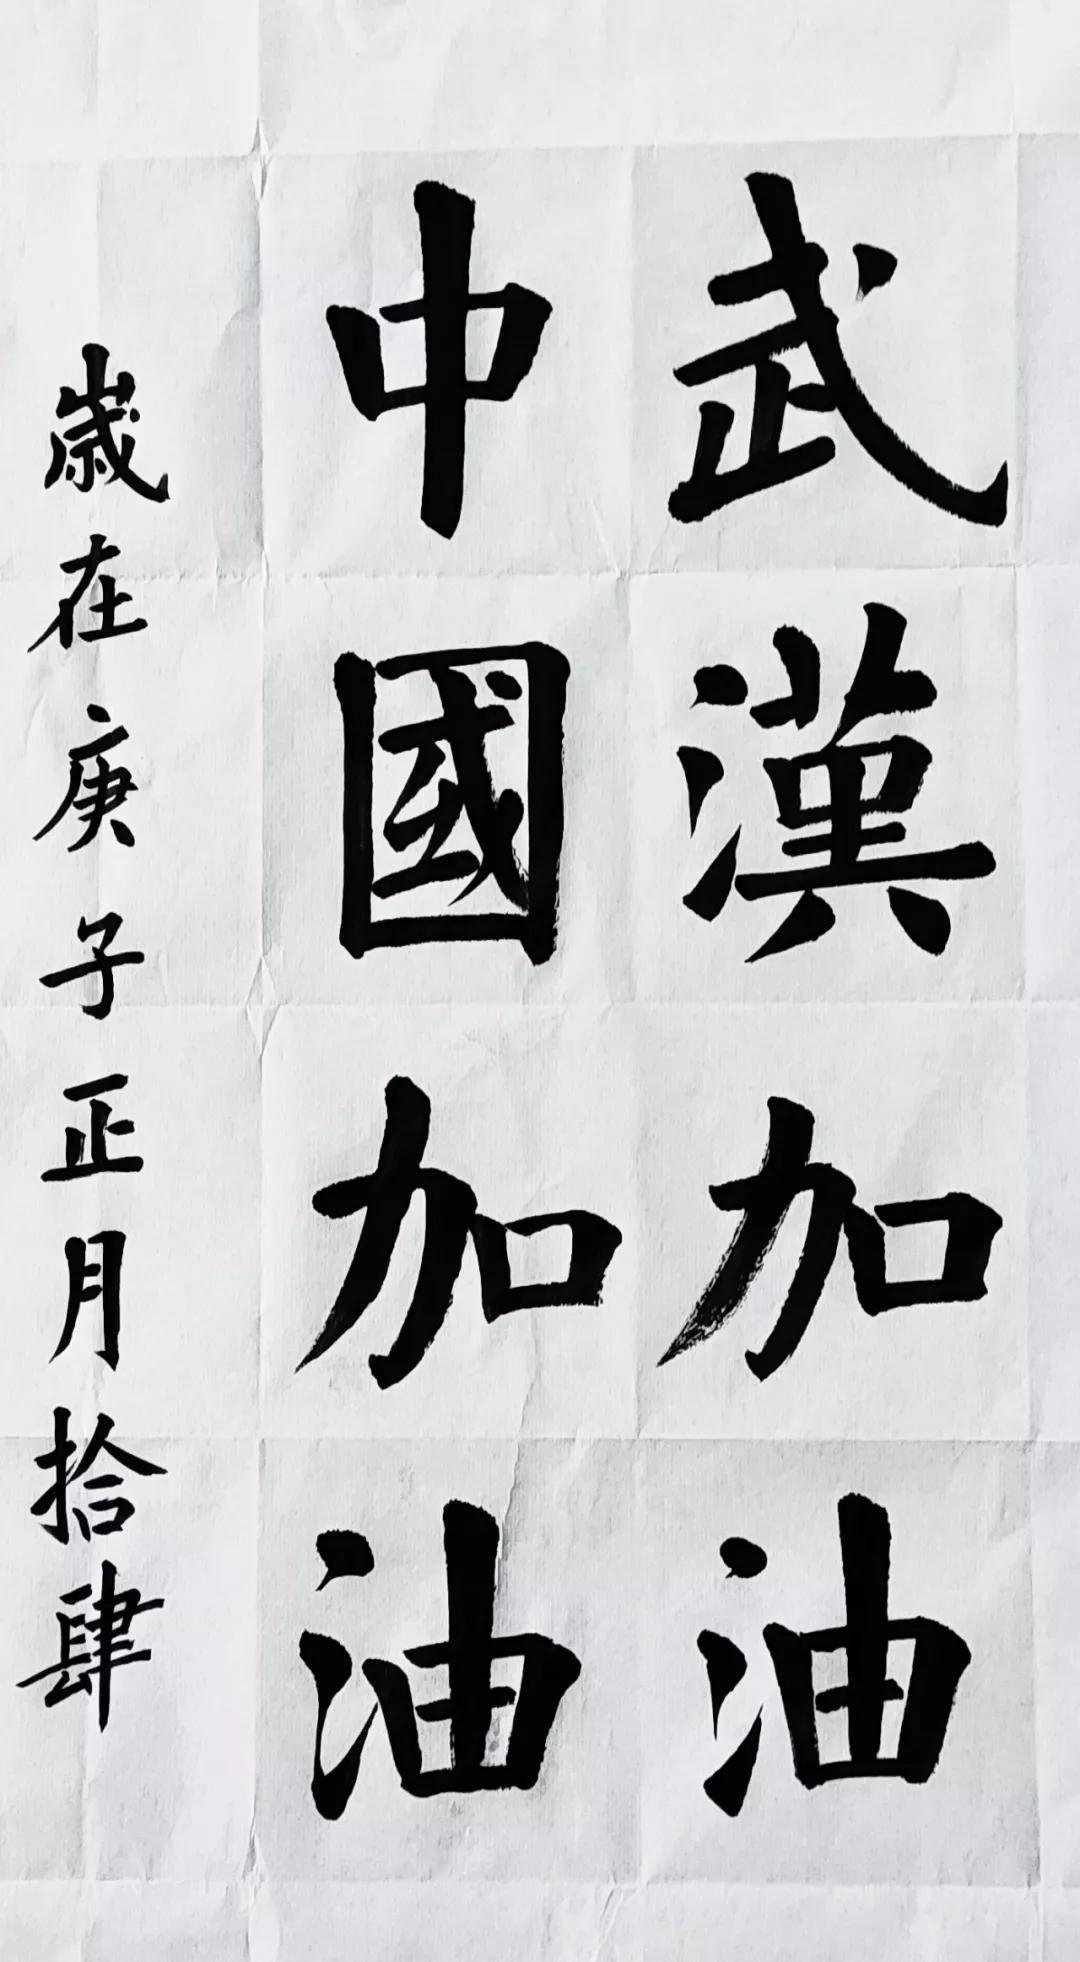 武漢加油
中國加油
歲在庚子正月拾肆